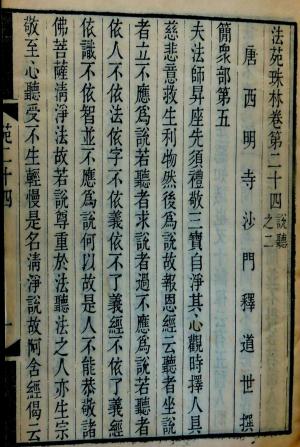 法苑珠林卷第二十四 說聽之二
唐西明寺沙門釋道世撰
簡衆部第五
夫法師昇座先須禮敬三寶自淨其心觀時擇人具
慈悲意救生利物然後為說故報恩經云聽者坐說
者立不應為說若聽者求說者過不應為說若聽者
依人不依法依字不依義依不了義經不依了義經
依識不依智並不應為說何以故是人不能恭敬諸
佛菩薩清淨法故若說尊重於法聽法之人亦生宗
敬至心聽受不生輕慢是名清淨說故阿含經偈云
苑二十四
一